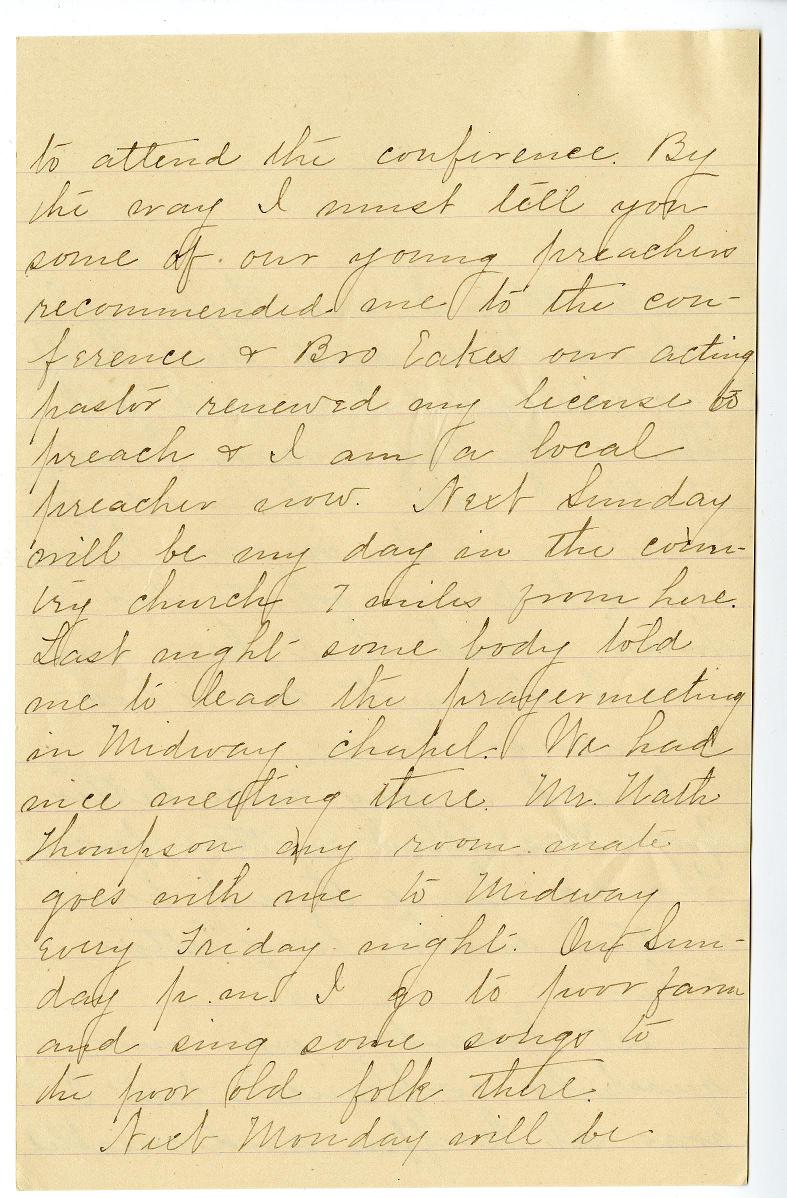 to attend the conference. By
the way I must tell you
some of our young preachers
recommended me to the con-
ference & Bro Eakes our acting
pastor renewed my license to
preach & I am a local
preacher now. Next Sunday
will be my day in the coun-
try church 7 miles from here.
Last night some body told
me to lead the prayermeeting
in Midway chapel. We had
nice meeting there. Mr. Nath
Thompson my room mate
goes with me to Midway
every Friday night. On Sun-
day p.m. I go to poor farm
and sing some songs to
the poor old folk there.
Next Monday will be